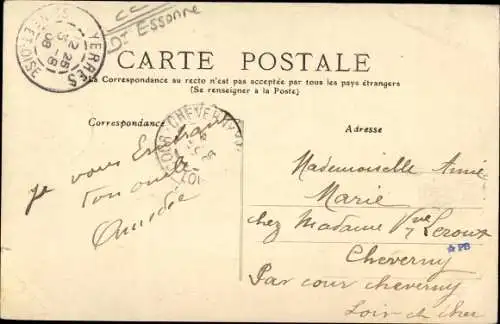 CC
Dt Essonne
YERRES
SEINE-ET-OISE
CARTE POSTALE
La Correspondance au recto n'est pas acceptée par tous les pays étrangers
(Se renseigner à la Poste)
Correspondance
CHEVERNY
Adresse
je vous Embrasse
ton oncle
Amédée
Mademoiselle Amie
Marie
chez Madame Vve Leroux
PB
Cheverny
Par cour cheverny
Loir et cher